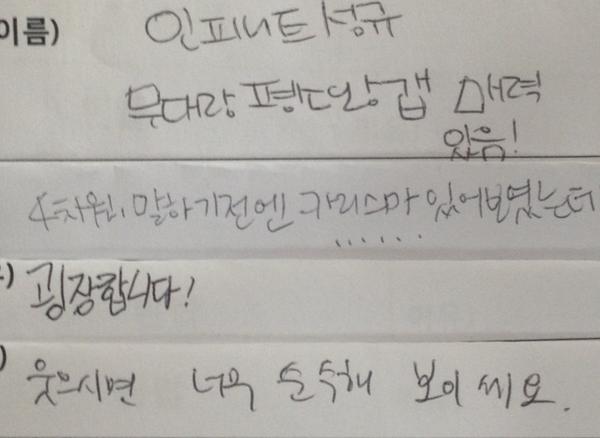 이름) 인피니트 성규
무대랑 평소랑 갭 매력
있음!
4차원, 말하기전엔 카리스마 있어보였는데
......
) 굉장합니다!
) 웃으시면 너무 순수해 보이세요.